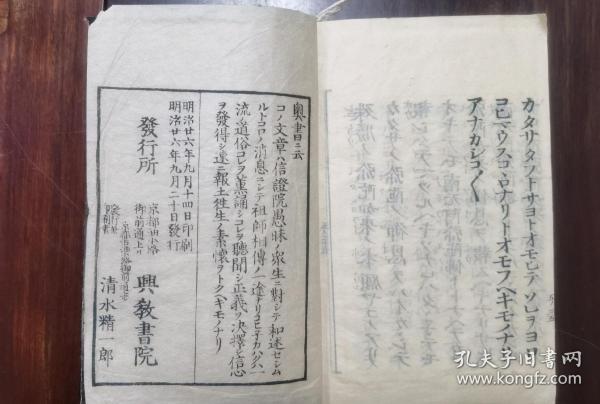 カタリタフトサヨトオモヒテソレヲヨロ
コヒマウスコヽロナリトオモフヘキモノナリ
アナカシコ〳〵
奥書ニ云
コノ文章ハ信證院愚昧ノ衆生ニ對シテ和述セシム
ルトコロノ消息ニシテ祖師相傳ノ一途ナリ
流ノ道俗コレヲ薫誦シコレヲ聴聞シ正義ヲ決擇シ信心
ヲ發得シ速ニ報土往生ノ素懐ヲトクヘキモノナリ
明治廿六年九月十四日印刷
明治廿六年九月二十日發行
發行所
京都油小路
御前通上ル
興教書院
發行者
印刷者
清水精一郎
孔夫子旧书网
www.kongfz.com